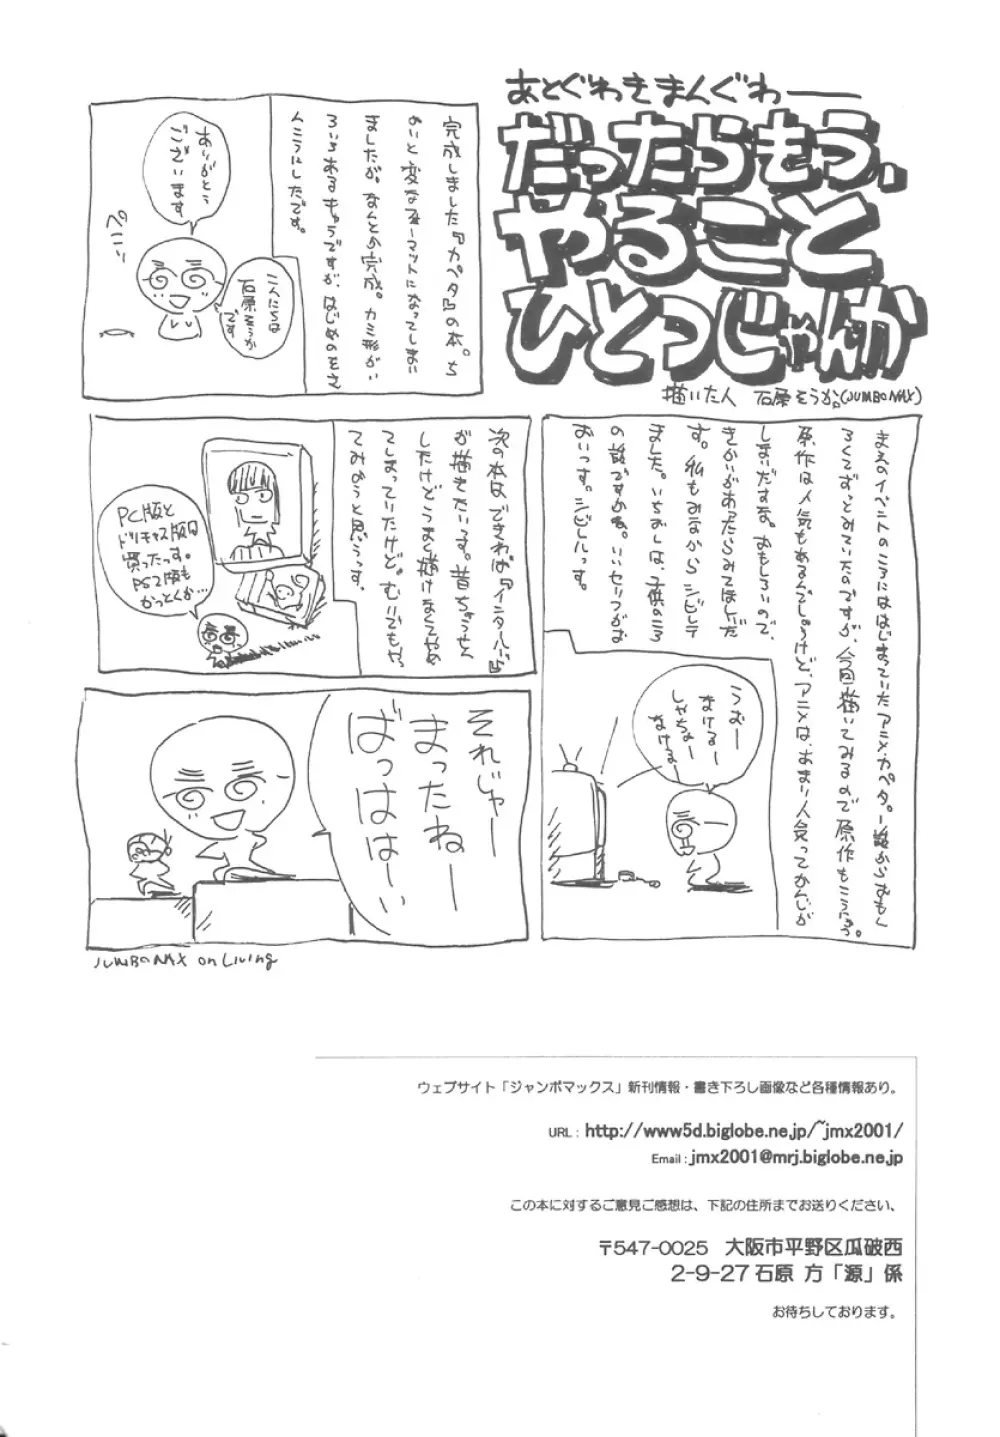 あとぐわきまんぐわー
だったらもう、
やること
ひとつじゃんか
描いた人 石原そうか。(JUMBOMAX)
完成しました『カペタ』の本。ち
ょいと変なフォーマットになってしまい
ましたが、なんとか完成。カミ形がい
ろいろあるキャラですが、はじめのをさ
んこうにしたです。
ありがとう
ございます
こんにちは
石原そうか
です
ペこり
まえのイベントのころにははじまっていたアニメ・カペタ。一話からおもし
ろくてずっとみていたのですが、今回描いてみるので原作もこうにゅう。
原作は人気もあるんでしょうけど、アニメは、あまり人気ってかんじが
しまいだすな。おもしろいので、
きかいがあったらみてほしいだ
す。私もみなからシビレテ
ました。いちおしは、子供のころ
の話ですかね。いいセリフがお
おいっす。シビレルっす。
うむー
なけるー
しゃちょー
なけるー
次の本は、できれば『イニシャルD』
が描きたいっす。昔ちょうせん
したけどうまく描けなくてやめ
てしまっていたけど。むりでもや
てみようと思うっす。
PC版と
ドリキャス版は
買ったっす。
PS2版も
かっとくか…
それじゃー
まったねー
ばっはは～い
JUMBOMAX on Living
ウェブサイト「ジャンボマックス」新刊情報・書き下ろし画像など各種情報あり。
URL：http://www5d.biglobe.ne.jp/~jmx2001/
Email：jmx2001@mrj.biglobe.ne.jp
この本に対するご意見ご感想は、下記の住所までお送りください、
〒547-0025 大阪市平野区瓜破西
2-9-27石原 方「源」係
お待ちしております。